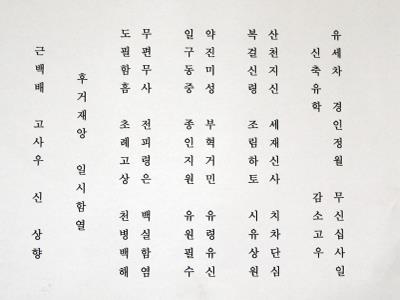 유세차 경인정월 무신십사일
신축유학 감소고우
산천지신 세재신사 치차단심
복걸신령 조림하토 시유상원
약진미성 부혁거민 유령유신
일구동중 종인지원 유원필수
무편무사 전피령은 백실함염
도필함흠 초례고상 천병백해
후거재앙 일시함열
근백배 고사우 신 상향